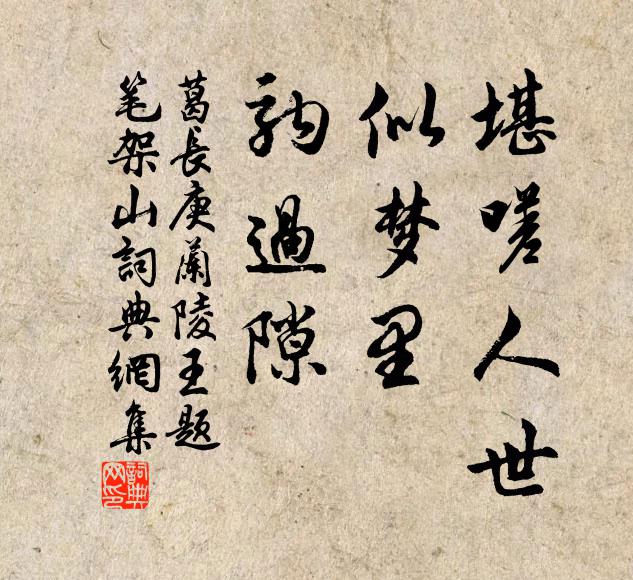 堪嗟人世
似梦里
駒過隙
葛長庚蘭陵王题
笔架山詞典網集
詞典
网印